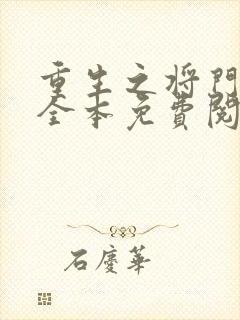 重生之将門
全本免費閱
石慶華